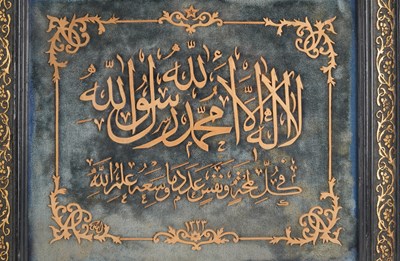 لا إله إلا الله محمد رسول الله
في كل لمحة ونفس عدد ما وسعه علم الله